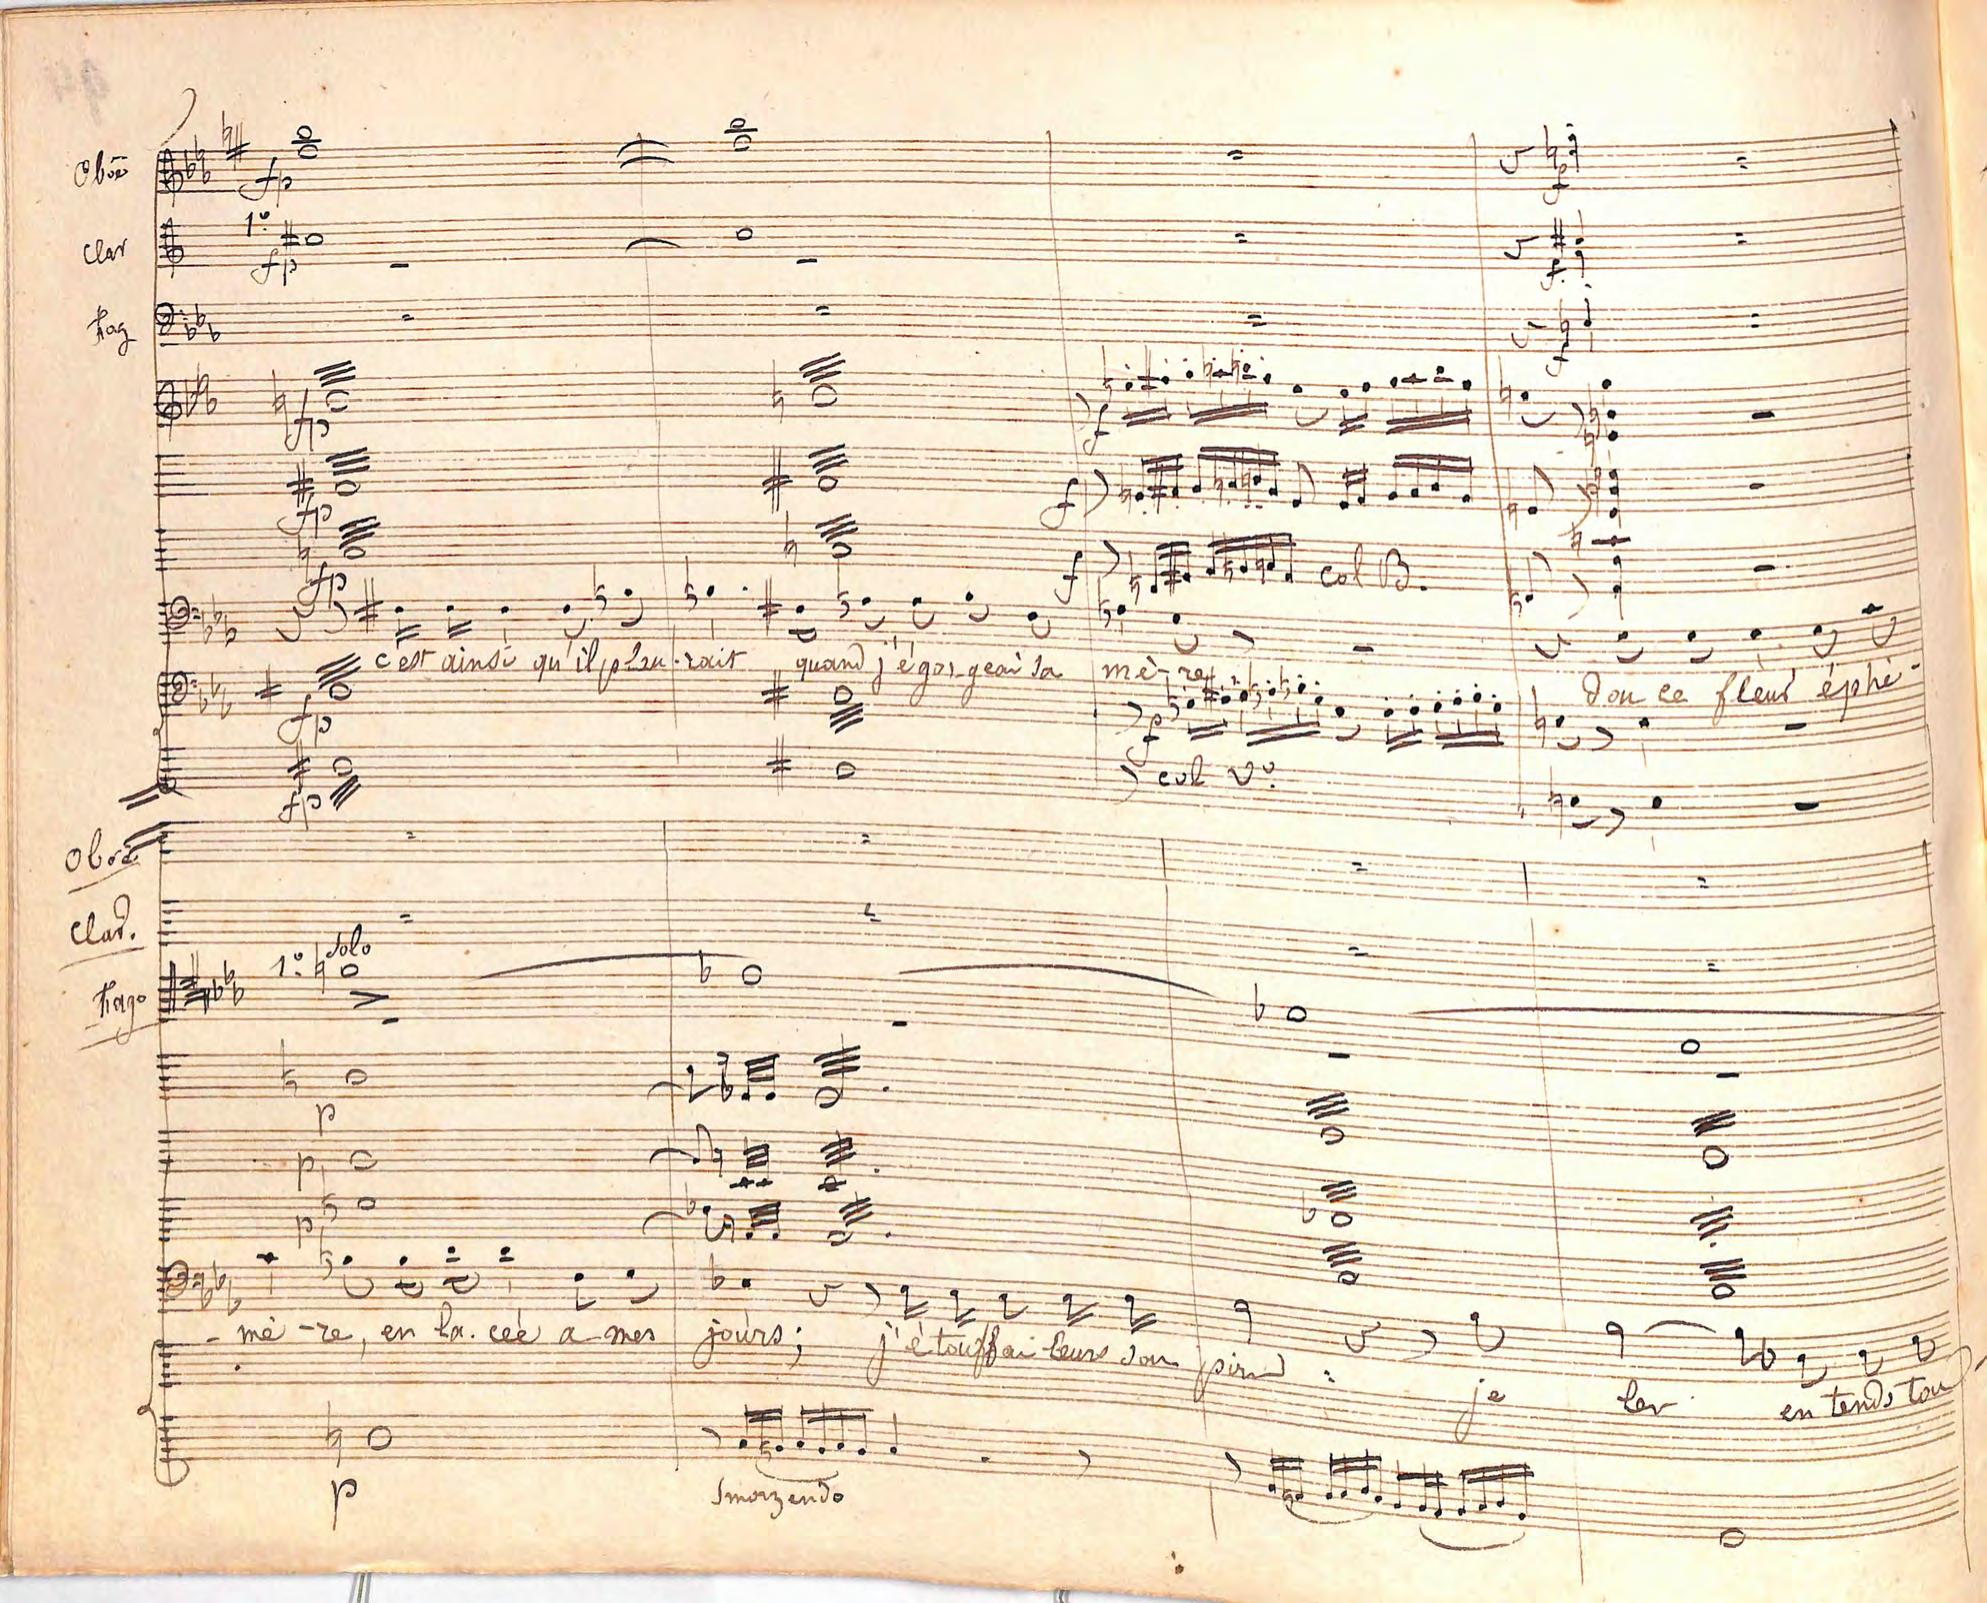 Oboe
fp
1º
Clar
fp
Fag
f
fp
f
fp
f
fp
f
col B.
c'est ainsi qu'il pleu-rait quand j'égor-geai sa mè-re
dou ce fleur éphé-
fp
f
fp
col Vº
Oboe
Clar.
1º Solo
Fago
p
p
p
-mè-re, en la-cée a mes jours; j'étouffai leurs sou pirs : je les entends tou
p
Smorzendo